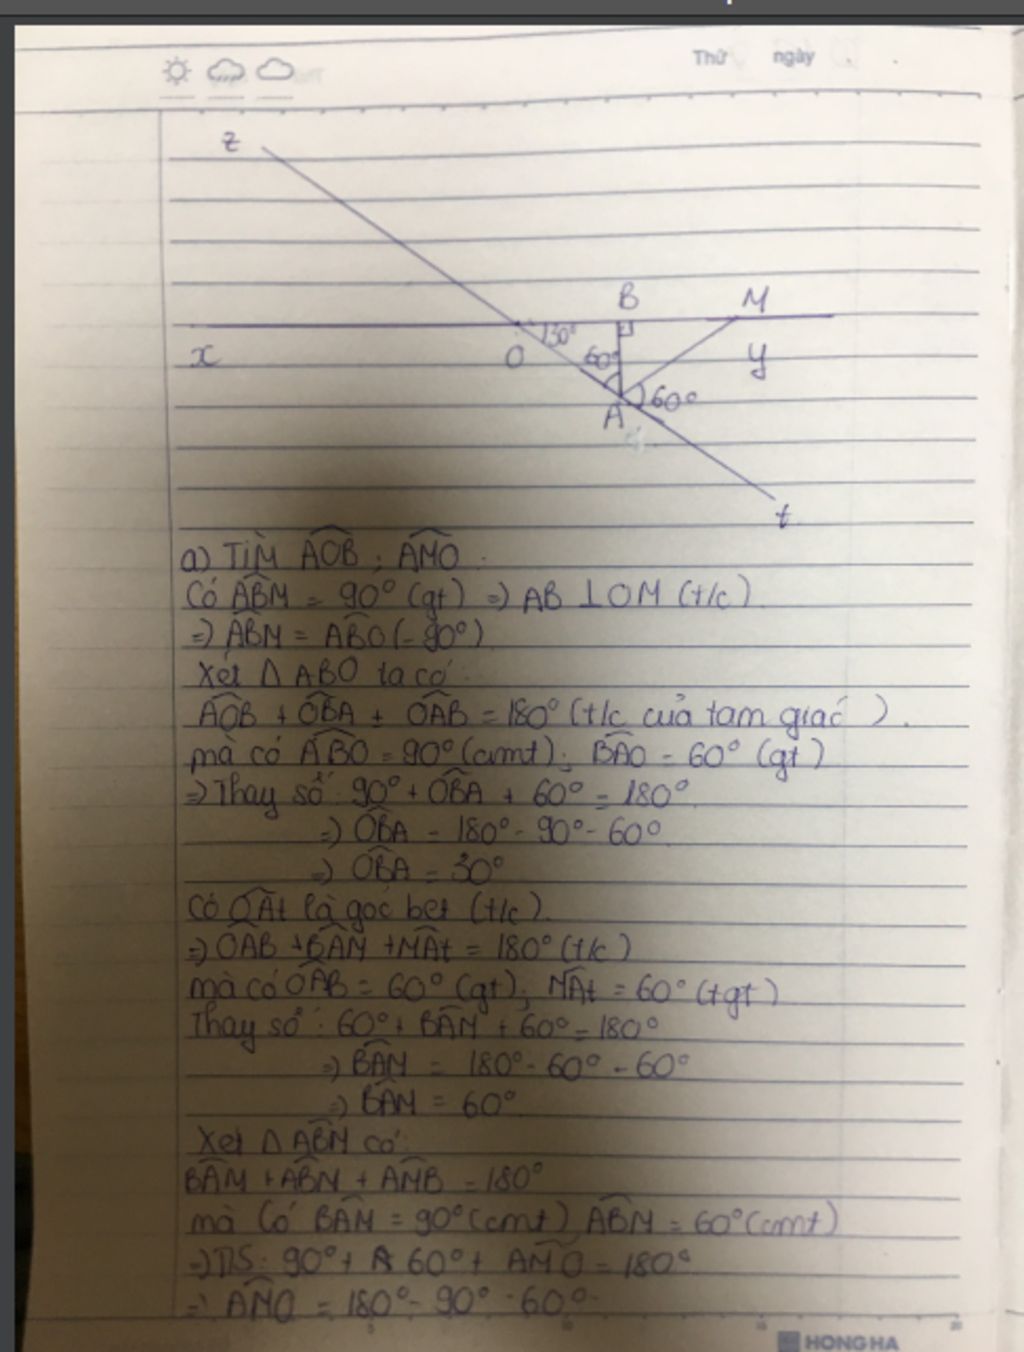 Thứ ngày
z
B M
30°
x O 60° y
A 60°
t
a) Tìm AOB ; AMO.
Có ABM = 90° (gt) => AB ⊥ OM (t/c)
=> ABM = ABO (= 90°)
Xét Δ ABO ta có
AOB + OBA + OAB = 180° (t/c của tam giác ).
mà có ABO = 90° (cmt); BAO = 60° (gt)
=> Thay số: 90° + OBA + 60° = 180°
=> OBA = 180° - 90° - 60°
=> OBA = 30°
Có OAt là góc bẹt (t/c).
=> OAB + BAM + MAt = 180° (t/c)
mà có OAB = 60° (gt); MAt = 60° (tgt)
Thay số: 60° + BAM + 60° = 180°
=> BAM = 180° - 60° - 60°
=> BAM = 60°
Xét Δ ABM có:
BAM + ABM + AMB = 180°
mà có BAM = 90° (cmt) ABM = 60° (cmt)
=> 90° + 60° + AMO = 180°
=> AMO = 180° - 90° - 60°
5 10 15 20
HONG HA